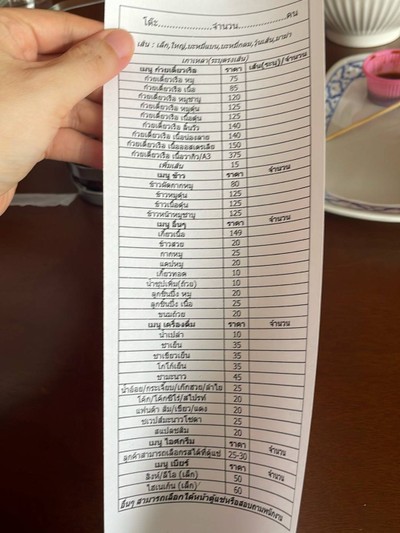 โต๊ะ..................จำนวน..........................คน
เส้น : เล็ก,ใหญ่,บะหมี่แบน,บะหมี่กลม,วุ้นเส้น,มาม่า
เกาเหลา(ระบุตรงเส้น)
เมนู ก๋วยเตี๋ยวเรือ ราคา เส้น(ระบุ)/จำนวน
ก๋วยเตี๋ยวเรือ หมู 75
ก๋วยเตี๋ยวเรือ เนื้อ 85
ก๋วยเตี๋ยวเรือ หมูชาบู 120
ก๋วยเตี๋ยวเรือ หมูตุ๋น 125
ก๋วยเตี๋ยวเรือ เนื้อตุ๋น 125
ก๋วยเตี๋ยวเรือ ลิ้นวัว 140
ก๋วยเตี๋ยวเรือ เนื้อน่องลาย 140
ก๋วยเตี๋ยวเรือ เนื้อออสเตรเลีย 150
ก๋วยเตี๋ยวเรือ เนื้อวากิว/A3 375
เพิ่มเส้น 15
เมนู ข้าว ราคา จำนวน
ข้าวผัดกากหมู 80
ข้าวหมูตุ๋น 125
ข้าวเนื้อตุ๋น 125
ข้าวหน้าหมูชาบู 125
เมนู อื่นๆ ราคา จำนวน
เกี๊ยวเนื้อ 149
ข้าวสวย 20
กากหมู 25
แคปหมู 20
เกี๊ยวทอด 10
น้ำซุปเพิ่ม(ถ้วย) 10
ลูกชิ้นปิ้ง หมู 20
ลูกชิ้นปิ้ง เนื้อ 25
ขนมถ้วย 20
เมนู เครื่องดื่ม ราคา จำนวน
น้ำเปล่า 10
ชาเย็น 35
ชาเขียวเย็น 35
โกโก้เย็น 35
ชามะนาว 45
น้ำอ้อย/กระเจี๊ยบ/เก๊กฮวย/ลำไย 25
โค้ก/โค้กซีโร่/สไปรท์ 20
แฟนต้า ส้ม/เขียว/แดง 20
ชเวปส์มะนาวโซดา 25
สแปลชส้ม 20
เมนู ไอศกรีม ราคา จำนวน
ลูกค้าสามารถเลือกรสได้ที่ตู้แช่ 25-30
เมนู เบียร์ ราคา จำนวน
สิงห์/ลีโอ (เล็ก) 50
ไฮเนเก้น (เล็ก) 60
อื่นๆ สามารถเลือกได้หน้าตู้แช่หรือสอบถามพนักงาน